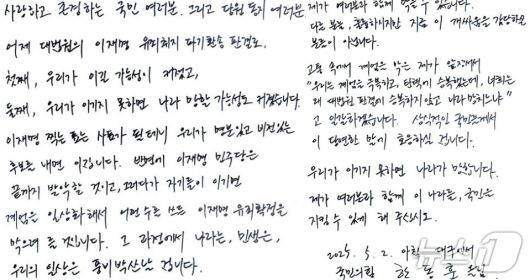 사랑하고 존경하는 국민 여러분. 그리고 당원 동지 여러분
어제 대법원의 이재명 유죄취지 파기환송 판결로,
첫째, 우리가 이길 가능성이 커졌고,
둘째, 우리가 이기지 못하면 나라 망할 가능성도 커졌습니다.
이재명 찍는 표는 사표가 될 테니 우리가 명분있고 비전있는
후보를 내면 이깁니다. 반면에 이재명 민주당은
끝까지 발악할 것이고, 그러다가 자기들이 이기면
계엄을 일상화해서 어떤 수를 쓰든 이재명 유죄확정을
막으려 들 것입니다. 그 과정에서 나라는, 민생은,
우리의 일상은 풍비박산날 겁니다.
제가 여러분과 함께 막을 수 있습니다.
다른 분들, 훌륭하시지만 지금 이 개싸움을 감당하실
분들이 아닙니다.
고통 속에서 계엄을 막은 제가 앞장서서
"우리는 계엄을 극복하고, 탄핵에 승복했는데, 너희는
왜 대법원 판결에 승복하지 않고 나라 망치느냐"
고 일갈하겠습니다. 상식적인 국민들께서
이 당연한 말에 호응하실 겁니다.
우리가 이기지 못하면 나라가 망합니다.
제가 여러분과 함께 이 나라를, 국민을
지킬 수 있게 해 주십시오.
2025. 5. 2. 아침 대구에서
국민의힘 한동훈 올림
뉴스1